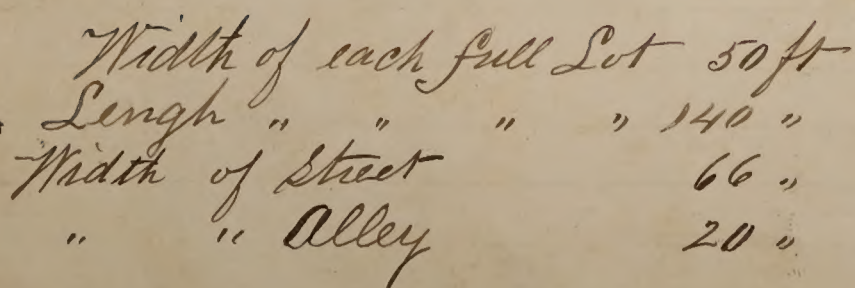 Width of each full Lot 50 ft
Lengh " " " " 140 "
Width of Street 66 "
" " Alley 20 "